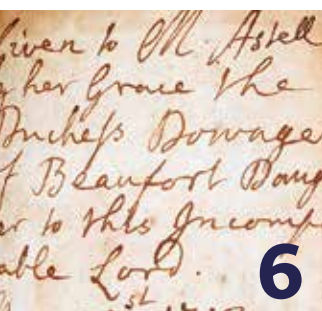 Given to M. Astell
her Grace the
Duchess Dowage
f Beaufort Daug
er to this Incomp
able Lord.
st
6